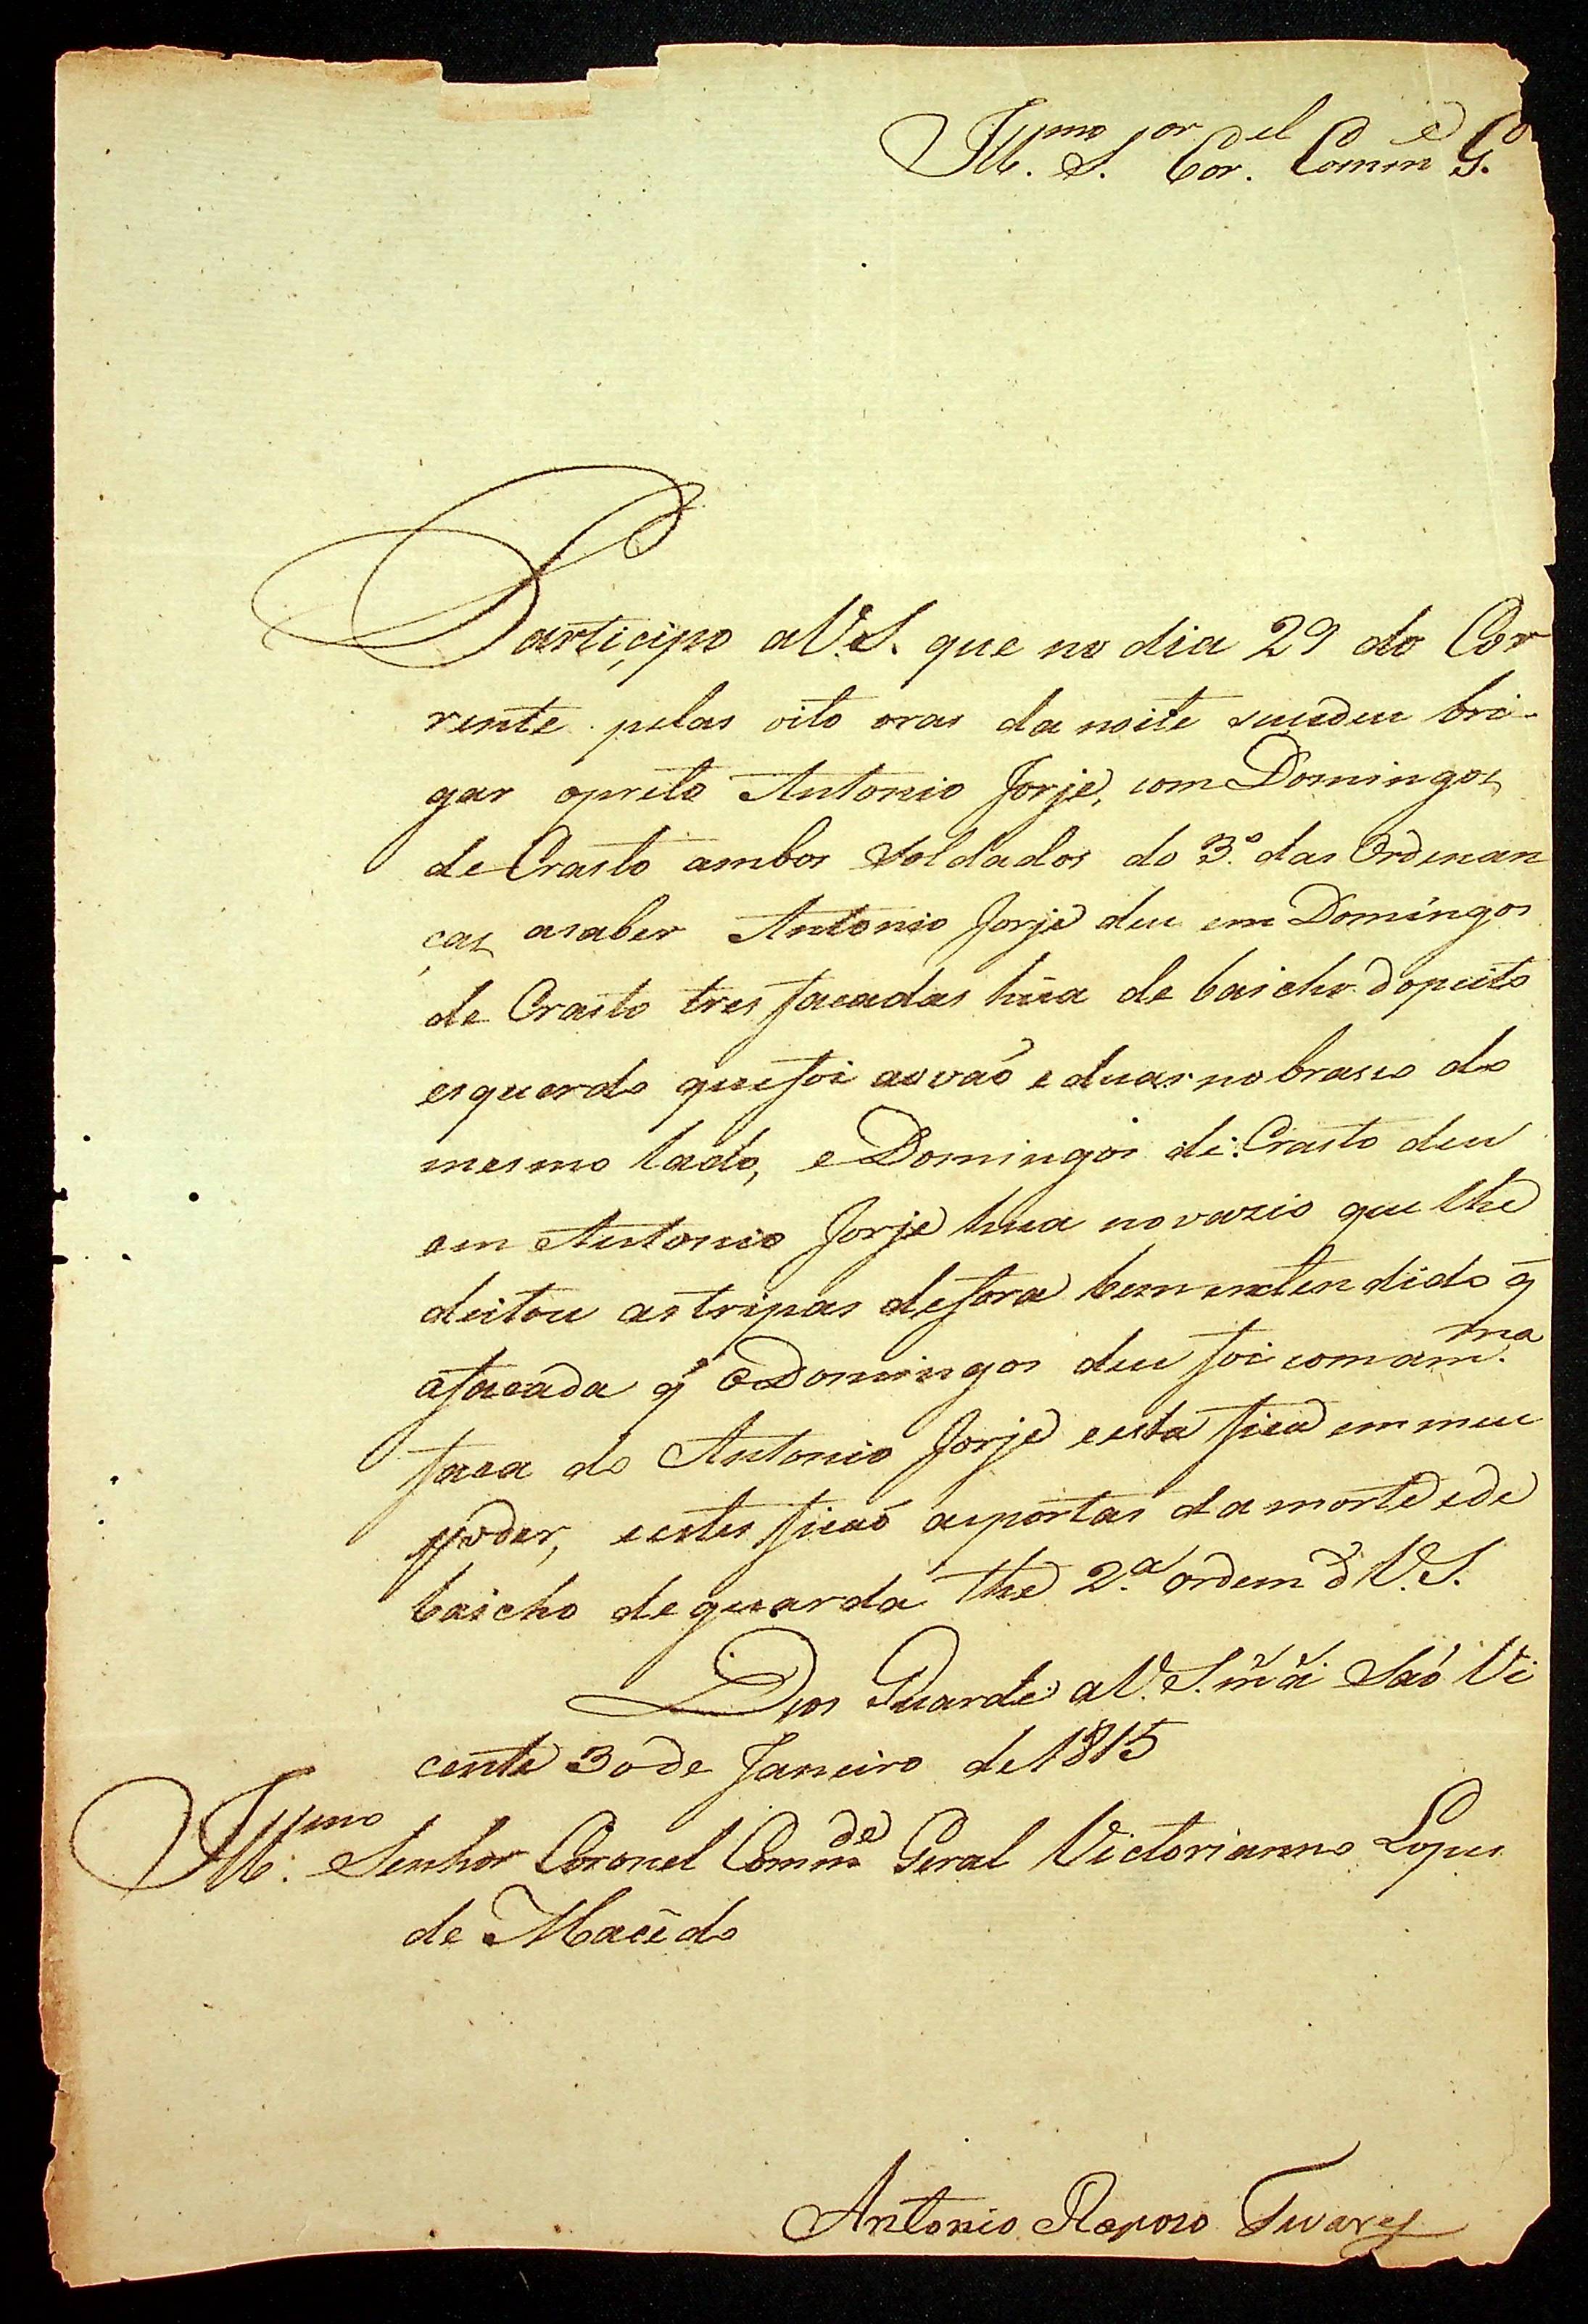 Ill.mo S.or Cor.el Comm.e G.
Participo aV.S. que no dia 29 do Cor
rente pelas oito oras da noite sucedeu bri-
gar opreto Antonio Jorje, com Domingos
de Crasto ambos Soldados do 3.º das Ordenan
ças asaber Antonio Jorje deu em Domingos
de Crasto tres facadas hũa de baicho dopeito
esquerdo quefoi aovaó e duas no braso do
mesmo lado, e Domingos de Crasto deu
em Antonio Jorje hua novazio que lhe
deitou astripas defora bem entendido q̃
afacada q̃ o Domingos deu foi comam.ma
faca do Antonio Jorje eesta fica emmeu
poder, eestes ficaó asportas damorte ede
baicho deguarda thé 2.ª ordem d V.S.
Deos Guarde aV.S. m̃ ã Saó Vi
cente 30 de Janeiro de 1815
Ill.mo Senhor Coronel Comm.de Geral Victorianno Lopes
de Macedo
Antonio Raposo Tavares